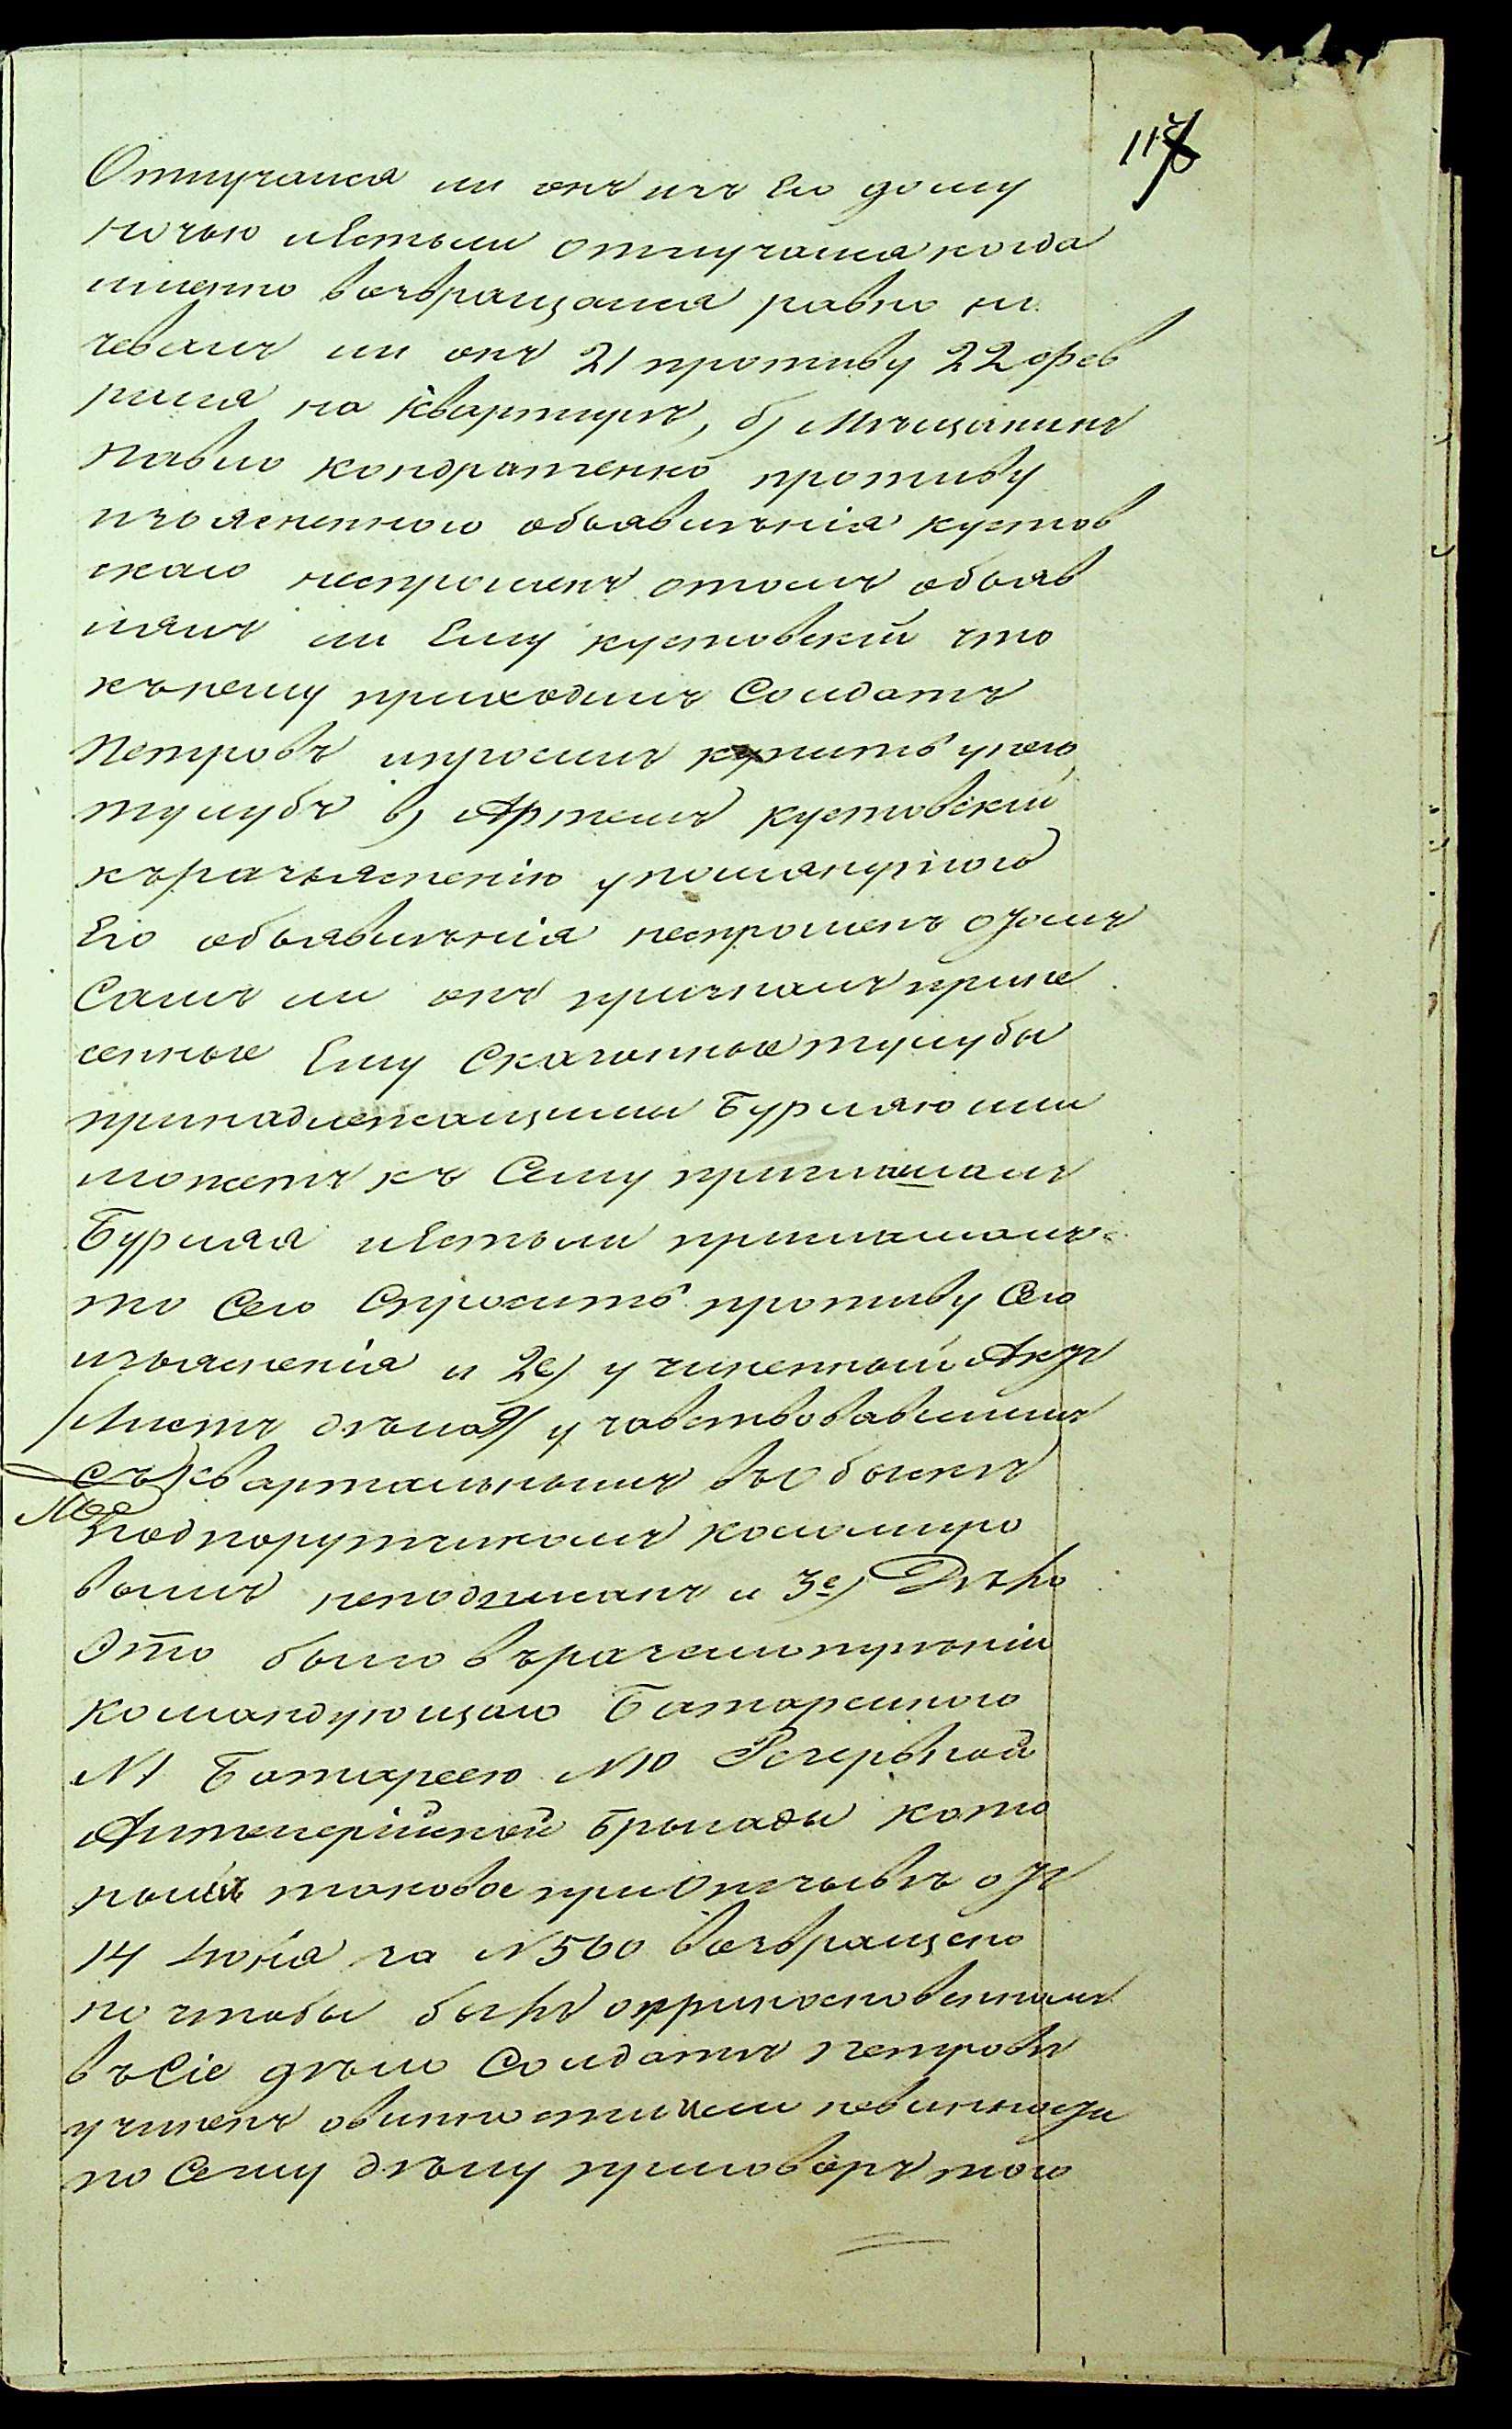 Отлучался ли онъ изъ Его дому
ночью иЕстьли отлучался когда
именно возвращался равно но
чевалъ ли онъ 21 противу 22 Фев
раля на квартирѣ, б) Мѣщанинъ
Павло Кондратенко противу
изъясненного объявленія Кустов
скаго неспрошенъ отомъ объяв
лялъ ли Ему Кустовскій что
кънему приходилъ Солдатъ
Петровъ ипросилъ купить унего
тулубъ в) Артемъ Кустовскій
къразъясненію упомянутого
Его объявленія неспрошенъ отомъ
Самъ ли онъ призналъ прине
сенные Ему Скаченные тулубы
принадлежащими Бурлаю или
можетъ къ Сему приглашалъ
Бурлая иЕстьли приглашалъ
то Сего Спросить противу Сего
изъясненія и 2е) учиненный Актъ
/Листъ дѣла 9/ учавствовавшимъ
съ квартальнымъ въОбыскѣ
Подпорутчикомъ Коломиро
вымъ неподписанъ и 3е) Дѣло
Это было въразсмотрѣніи
Командующаго Батарейного
№1 Батареею №10 Резервной
Артилерійской Бригады кото
рымъ таковое приОтзывѣ отъ
14 Іюня за №560 возвращено
но чтобы былъ оприкосновенномъ
въСіе дѣло Солдатѣ Петровѣ
учиненъ овинностиили невинности
по Сему дѣлу приговоръ того